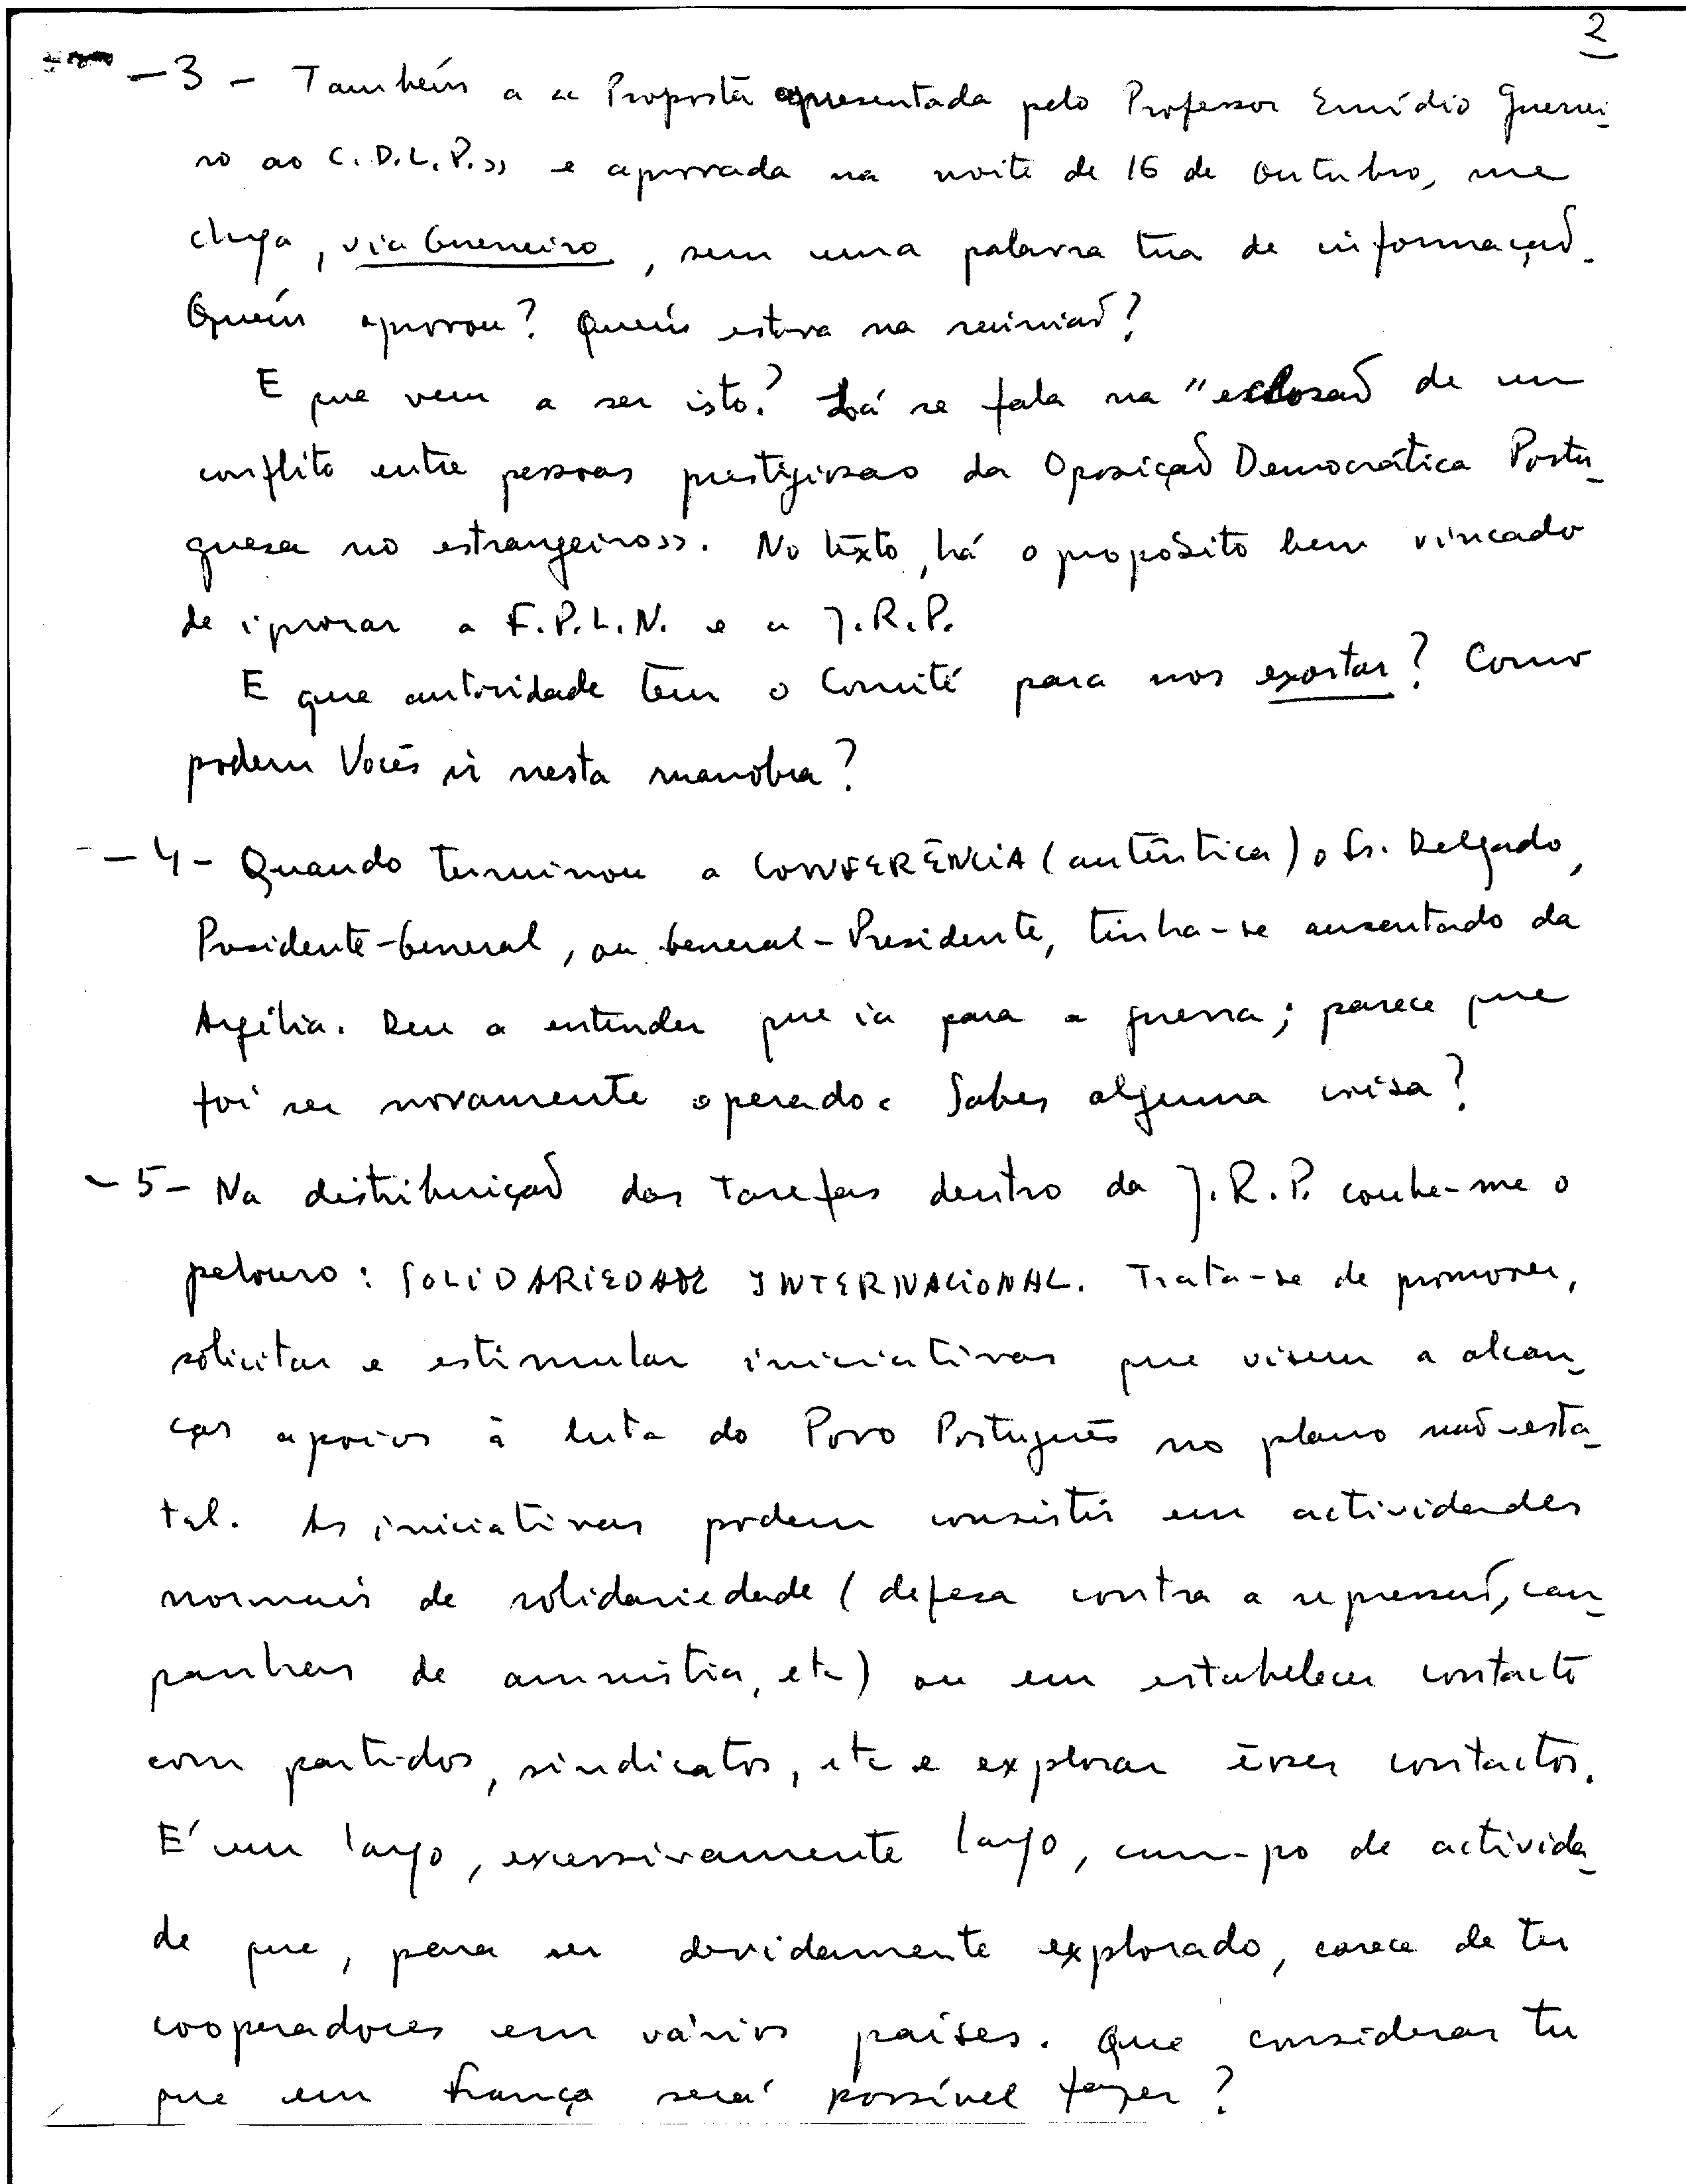 2
— 3 — Também a «Proposta apresentada pelo Professor Emídio Guerrei-
ro ao C.D.L.P.» e aprovada na noite de 16 de Outubro, me
chega, via Guerreiro, sem uma palavra tua de informação.
Quem aprovou? Quem estava na reunião?
E que vem a ser isto? Lá se fala na "eclosão de um
conflito entre pessoas prestigiosas da Oposição Democrática Portu-
guesa no estrangeiro». No texto, há o propósito bem vincado
de ignorar a F.P.L.N. e a J.R.P.
E que autoridade tem o Comité para nos exortar? Como
podem Vocês ir nesta manobra?
— 4 — Quando terminou a CONFERÊNCIA (autêntica) o Sr. Delgado,
Presidente-General, ou General-Presidente, tinha-se ausentado da
Argélia. Deu a entender que ia para a guerra; parece que
foi ser novamente operado. Sabes alguma coisa?
— 5 — Na distribuição das tarefas dentro da J.R.P. coube-me o
pelouro: SOLIDARIEDADE INTERNACIONAL. Trata-se de promover,
solicitar e estimular iniciativas que visem a alcan-
çar apoios à luta do Povo Português no plano não-esta-
tal. As iniciativas podem consistir em actividades
normais de solidariedade (defesa contra a repressão, cam-
panhas de amnistia, etc) ou em estabelecer contacto
com partidos, sindicatos, etc e explorar êsses contactos.
É um largo, excessivamente largo, cam-po de activida-
de que, para ser devidamente explorado, carece de ter
cooperadores em vários países. Que consideras tu
que em França será possível fazer?